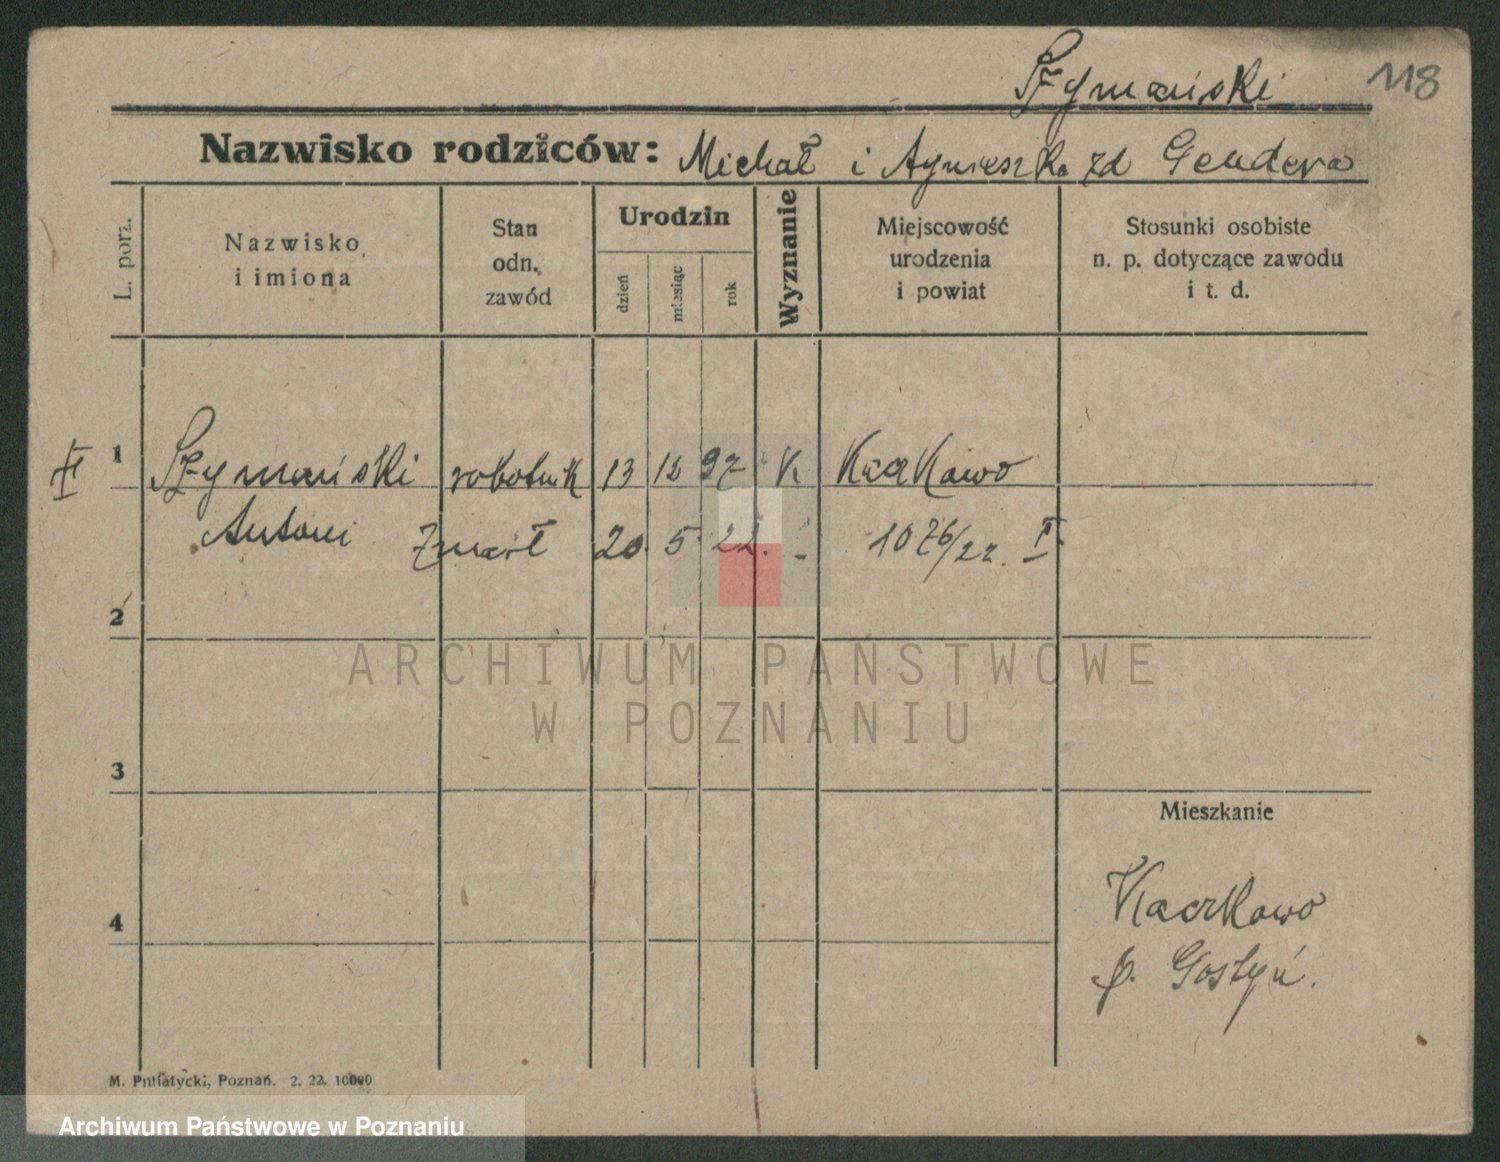 Szymański 118
Nazwisko rodziców: Michał i Agnieszka zd Gendera
L. porz.
Nazwisko
i imiona
Stan
odn.
zawód
Urodzin
dzień
miesiąc
rok
Wyznanie
Miejscowość
urodzenia
i powiat
Stosunki osobiste
n. p. dotyczące zawodu
i t. d.
1 Szymański robotnik 13 12 97 K Kaczkowo
Antoni Zmarł 20. 5. 22. - 1076/22. I.
2
ARCHIWUM PAŃSTWOWE
W POZNANIU
3
Mieszkanie
4
Kaczkowo
p. Gostyń.
M. Putiatycki, Poznań. 2. 22. 10000
Archiwum Państwowe w Poznaniu